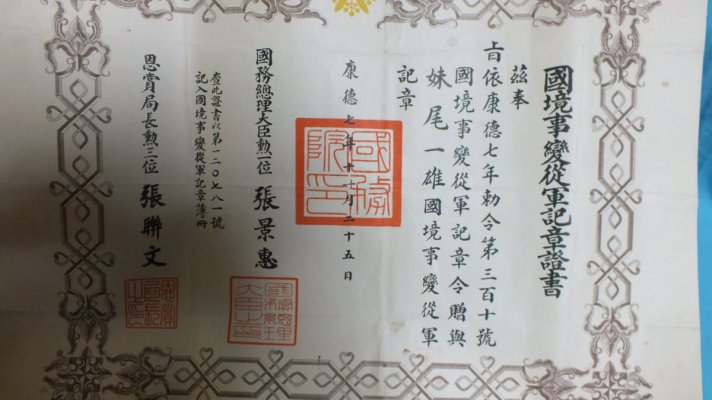 國境事變從軍記章證書
茲奉
上旨依康德七年勅令第三百十號
國境事變從軍記章令贈與
妹尾一雄國境事變從軍
記章
康德七年十一月二十五日
國務院印
國務總理大臣勳一位 張景惠
國務總理大臣之印
查此證書以第一二〇七八一號
記入國境事變從軍記章簿冊
恩賞局長勳三位 張聯文
恩賞局長之印